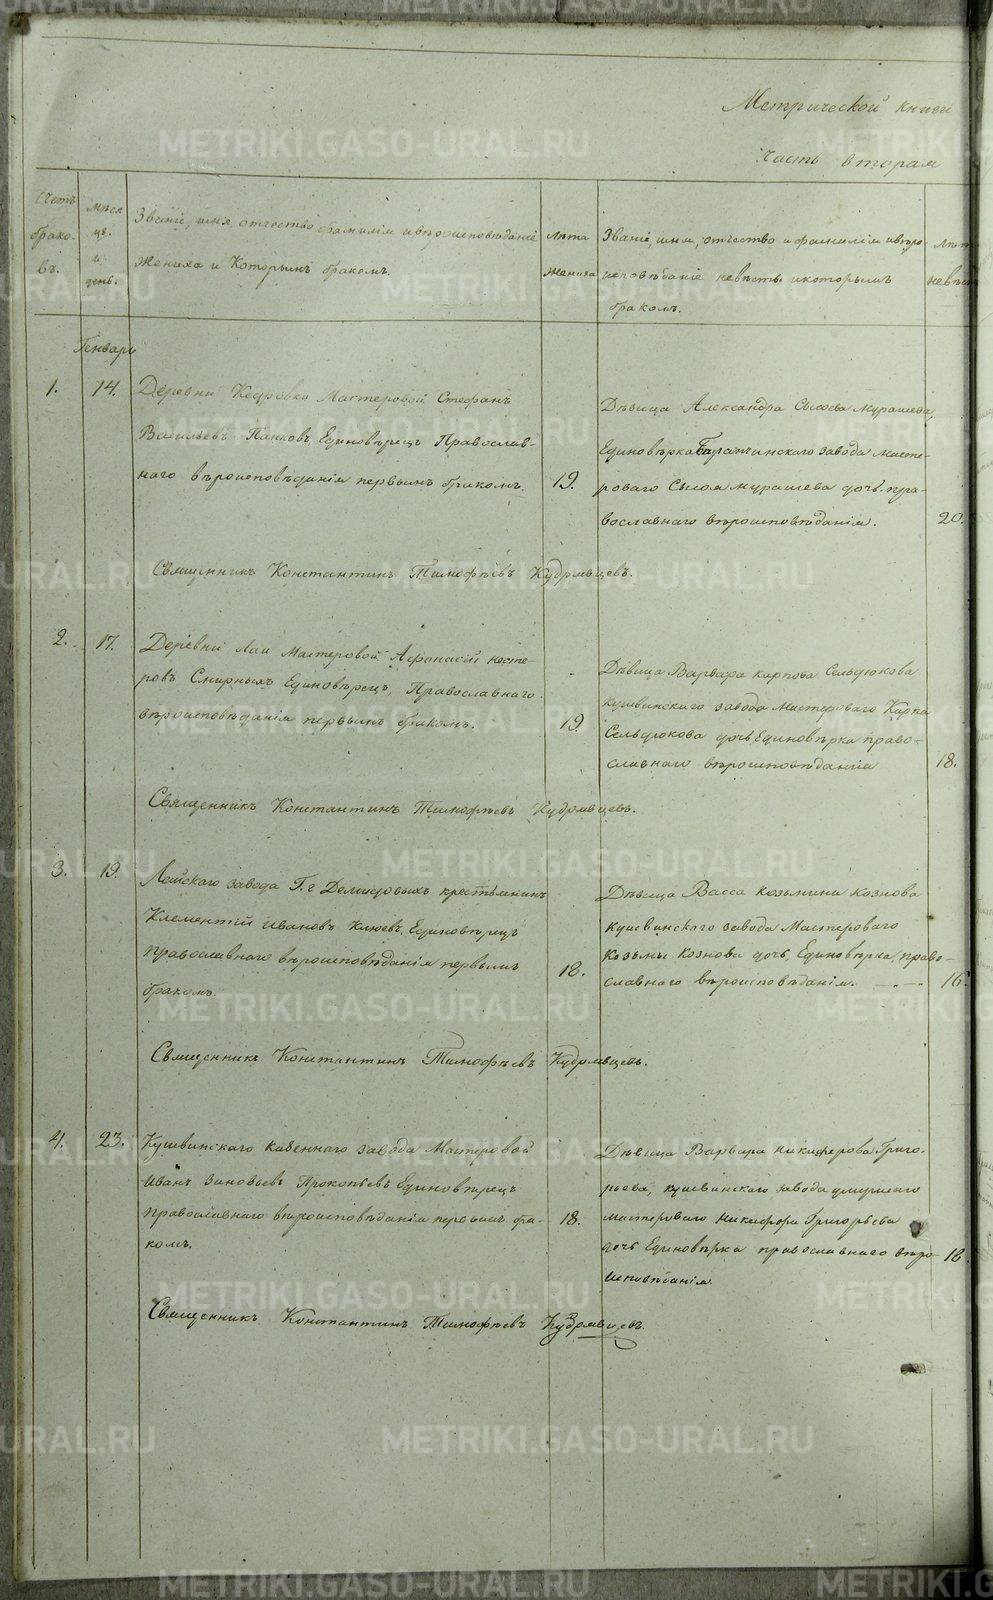 Метрической книги
часть вторая
Счетъ брако-въ.
мѣся це. и день.
Званіе, имя, отчество фамилія и вѣроисповѣданіе
жениха и которымъ бракомъ.
Лѣта жениха
Званіе, имя, отчество и фамилія и вѣро-
исповѣданіе невѣсты и которымъ
бракомъ.
Лѣт невѣст
Генварь
1. 14.
Деревни Кедровки Мастеровой Стефанъ
Васильевъ Панковъ, Единовѣрецъ Православ-
наго вѣроисповѣданія первымъ бракомъ.
19.
Дѣвица Александра Сысоева Мурашева,
Единовѣрка Баранчинскаго завода Масте-
роваго Сысоя Мурашева дочь. пра-
вославнаго вѣроисповѣданія.
20.
Священникъ Константинъ Тимофѣевъ Кудрявцевъ.
2. 17.
Деревни Лаи Мастеровой Афанасій Несте-
ровъ Смирныхъ Единовѣрецъ, Православнаго
вѣроисповѣданія первымъ бракомъ.
19.
Дѣвица Варвара Карпова Сельдюкова
Кушвинскаго завода Мастероваго Карпа
Сельдюкова дочь, Единовѣрка право-
славнаго вѣроисповѣданія
18.
Священникъ Константинъ Тимофѣевъ Кудрявцевъ.
3. 19.
Лайскаго завода Г. г Демидовыхъ крестьянинъ
Клементій Ивановъ Клюевъ, Единовѣрецъ
православнаго вѣроисповѣданія первымъ
бракомъ.
18.
Дѣвица Васса Козьмина Кознова
Кушвинскаго завода Мастероваго
Козьмы Кознова дочь, Единовѣрка, право-
славнаго вѣроисповѣданія.
16.
Священникъ Константинъ Тимофѣевъ Кудрявцевъ.
4. 23.
Кушвинскаго казеннаго завода Мастеровой
Иванъ Зиновьевъ Прокопьевъ Единовѣрецъ
православнаго вѣроисповѣданія первымъ бра-
комъ.
18.
Дѣвица Варвара Никифорова Григо-
рьева, кушвинскаго завода умершаго
мастероваго Никифора Григорьева
дочь Единовѣрка православнаго вѣро
исповѣданія.
18.
Священникъ Константинъ Тимофѣевъ Кудрявцевъ.
METRIKI.GASO-URAL.RU